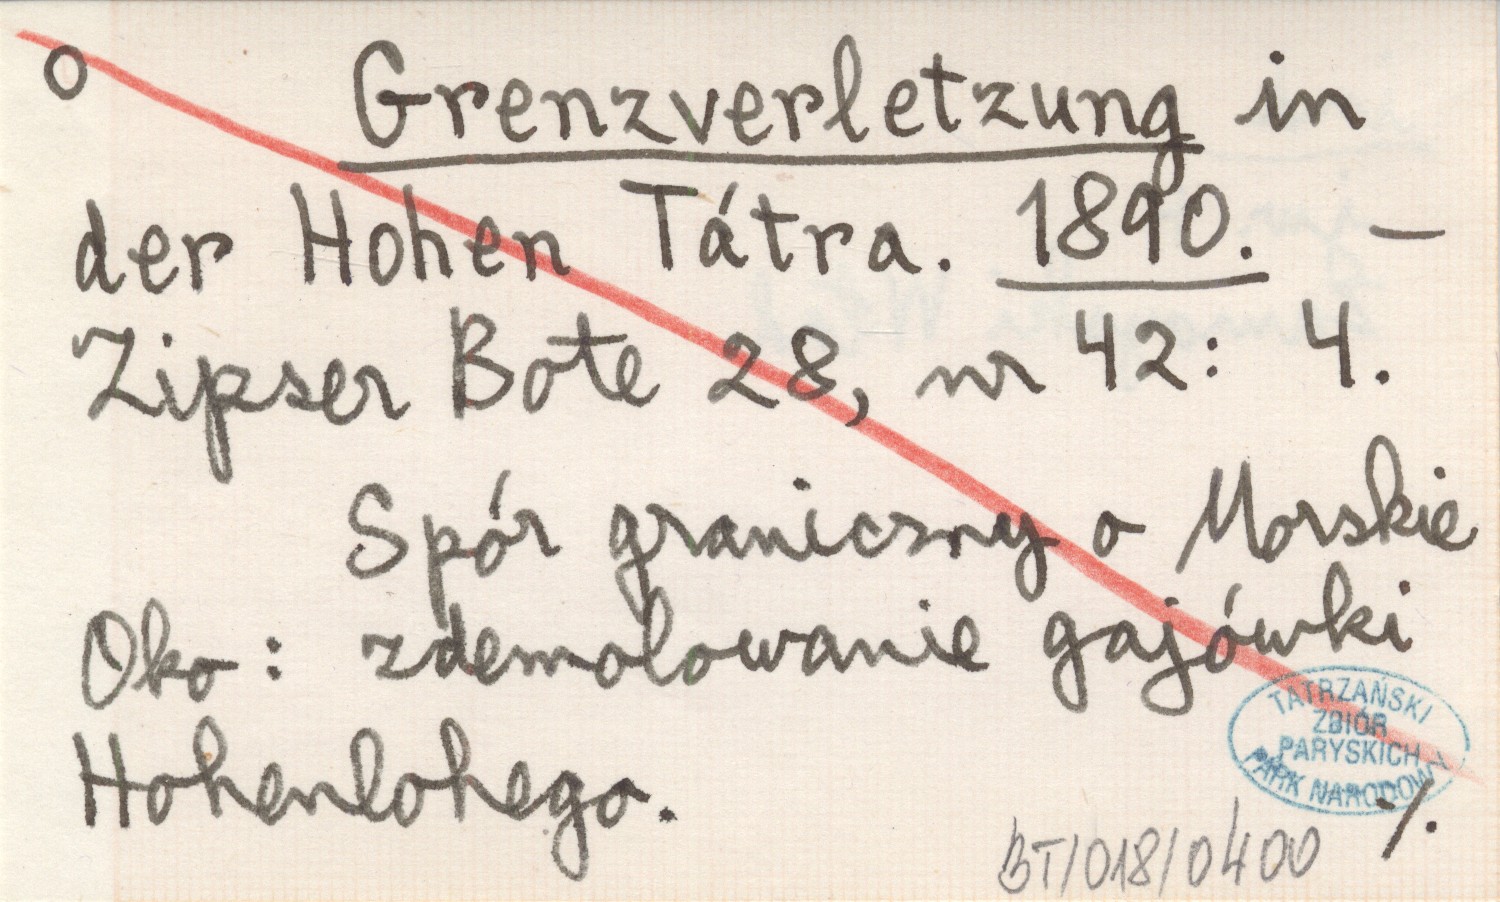 o Grenzverletzung in
der Hohen Tátra. 1890. —
Zipser Bote 28, nr 42: 4.
Spór graniczny o Morskie
Oko: zdemolowanie gajówki
Hohenlohego.
TATRZAŃSKI
ZBIÓR
PARYSKICH
PARK NARODOWY
./.
BT/018/0400